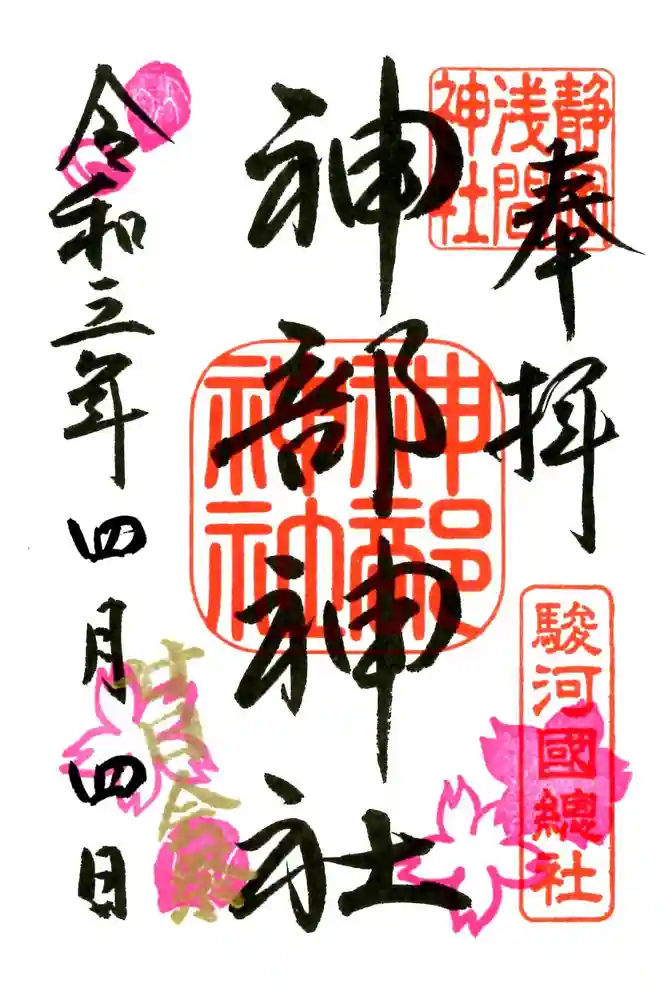 奉拝
静岡
浅間
神社
駿河國總社
神部神社
神部
神社
令和三年四月四日
廿日会祭